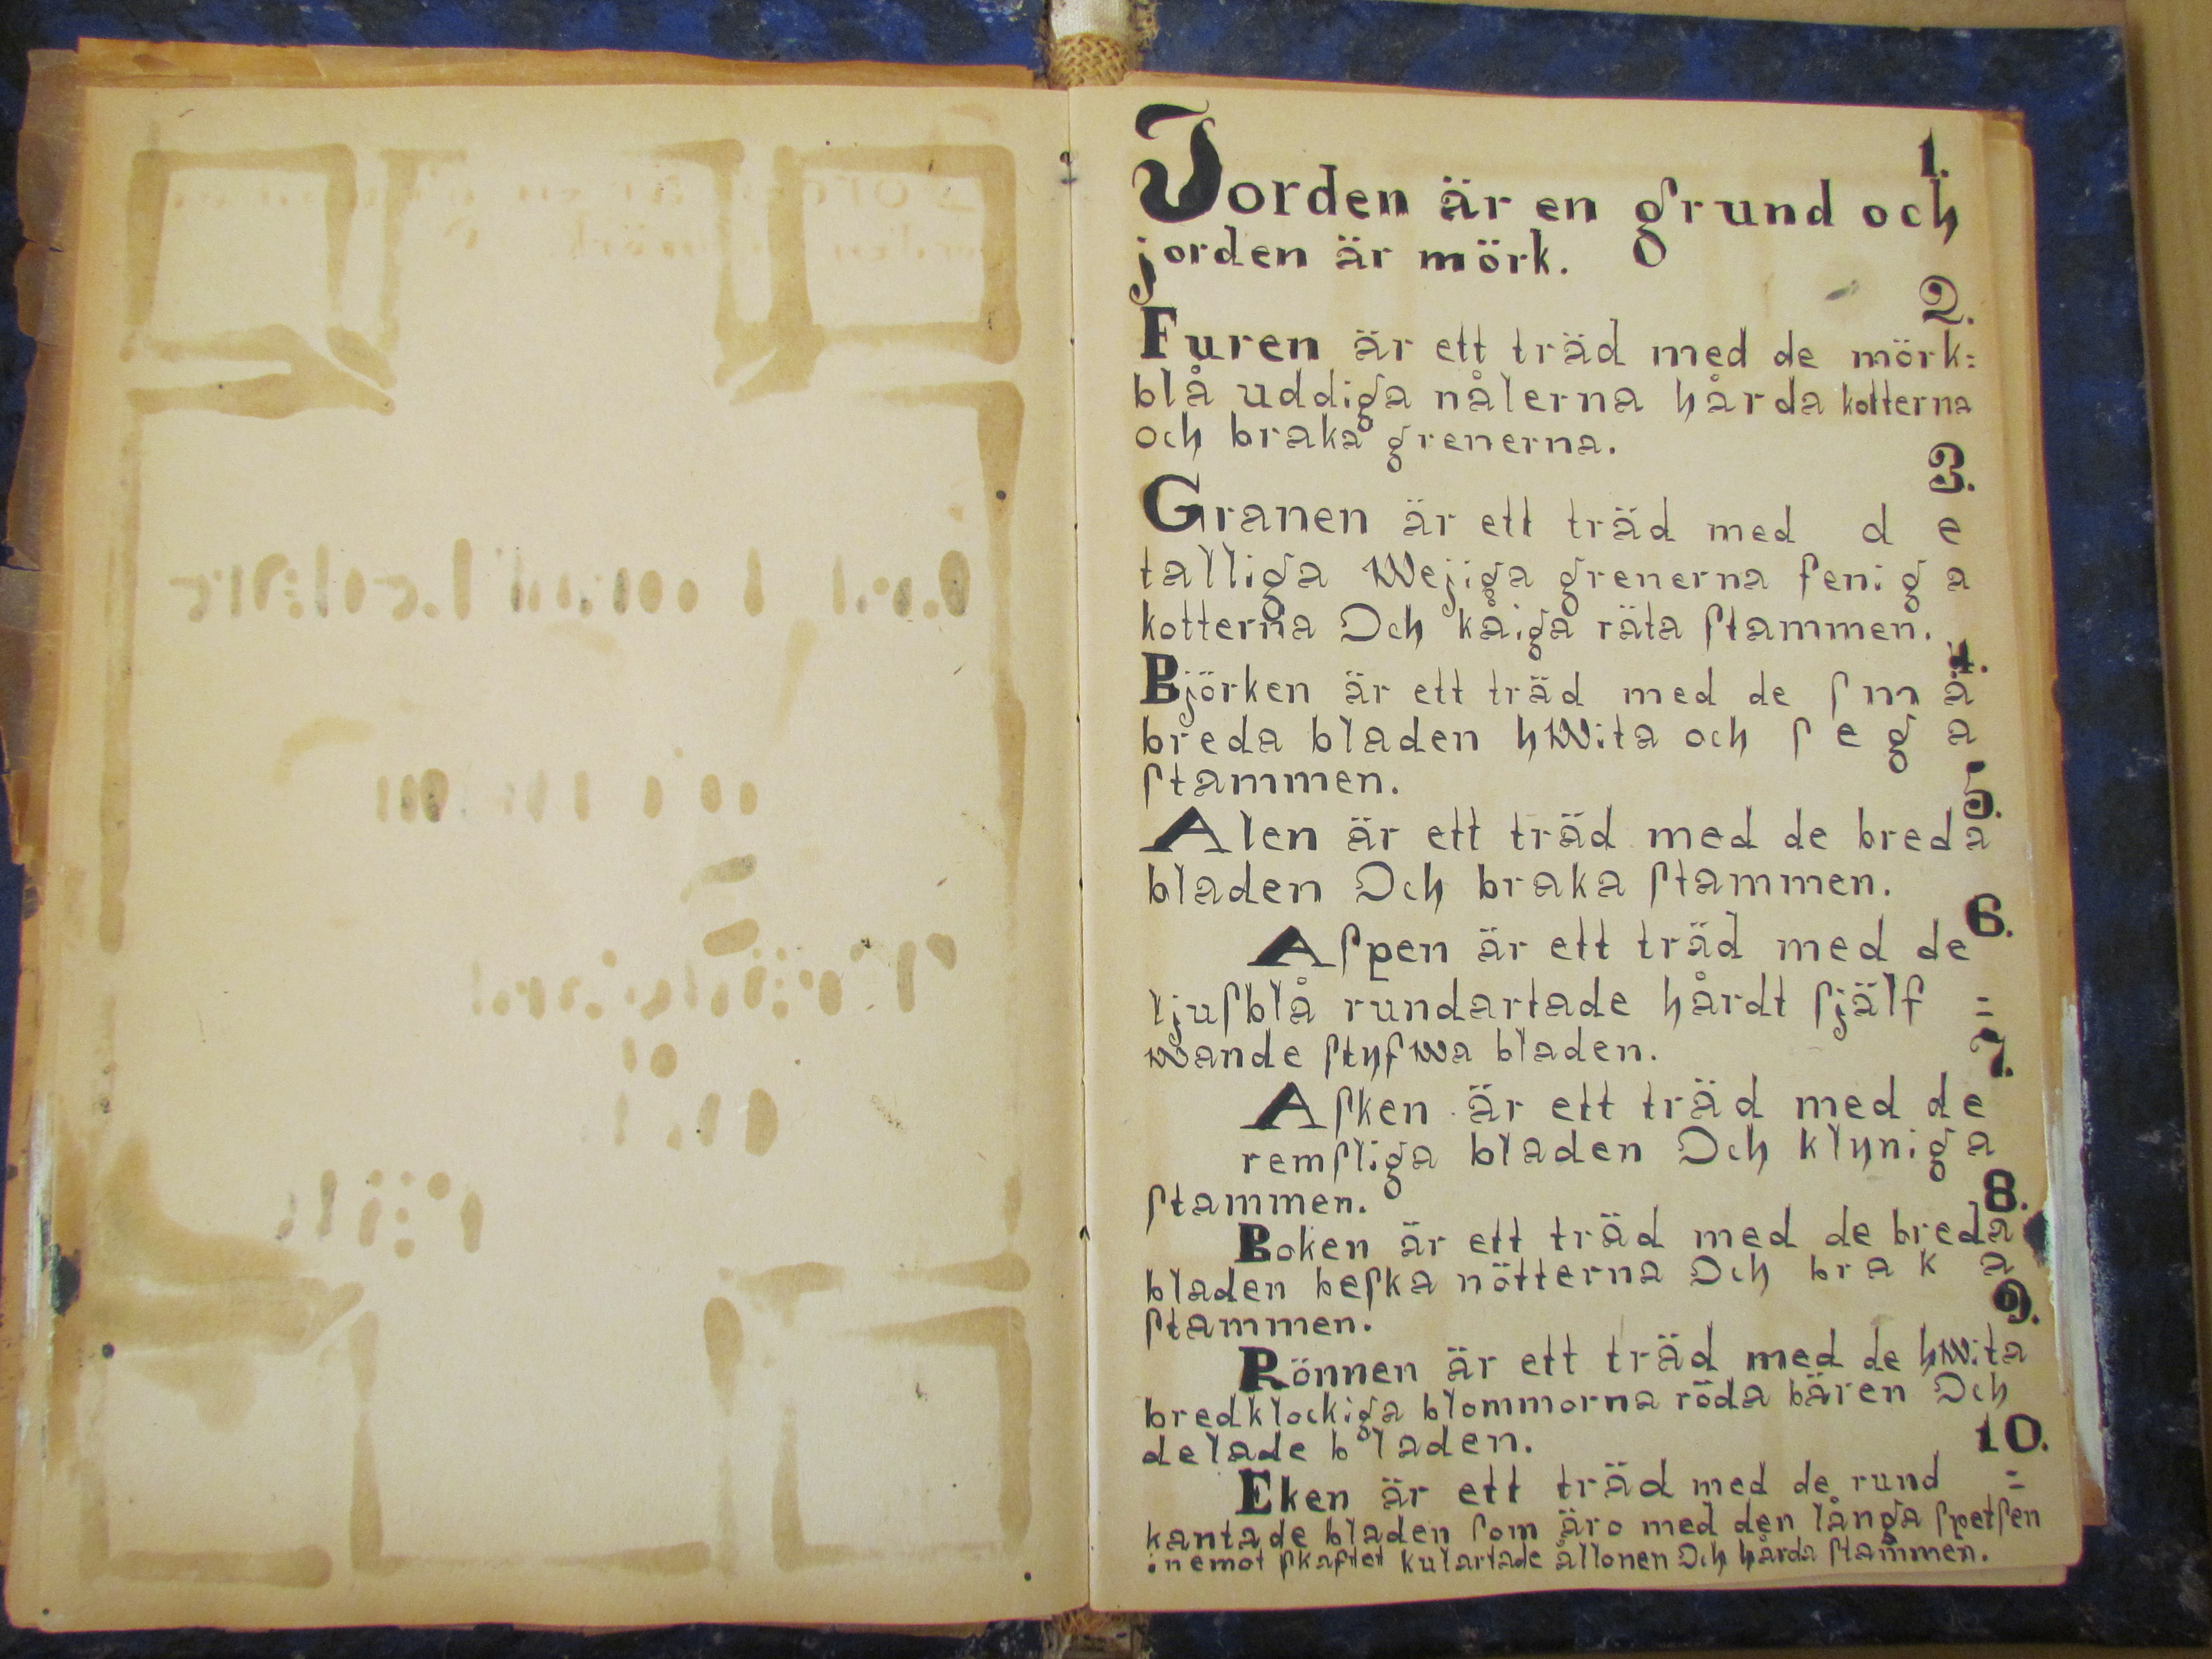 1.
Jorden är en grund och
jorden är mörk.
2.
Furen är ett träd med de mörk=
blå uddiga nålerna hårda kotterna
och braka grenerna.
3.
Granen är ett träd med de
talliga wejiga grenerna feniga
kotterna Och kåiga räta ſtammen.
4.
Björken är ett träd med de ſmä
breda bladen hwita och ſega
ſtammen.
5.
Alen är ett träd med de breda
bladen Och braka ſtammen.
6.
Aſpen är ett träd med de
ljuſblå rundartade hårdt ſjälf=
wande ſtyfwa bladen.
7.
Aſken är ett träd med de
remſliga bladen Och klyniga
ſtammen.
8.
Boken är ett träd med de breda
bladen beſka nötterna Och braka
ſtammen.
9.
Rönnen är ett träd med de hwita
bredklockiga blommorna röda bären Och
delade bladen.
10.
Eken är ett träd med de rund=
kantade bladen ſom äro med den långa ſpetſen
inemot ſkaftet kulartade ållonen Och hårda ſtammen.